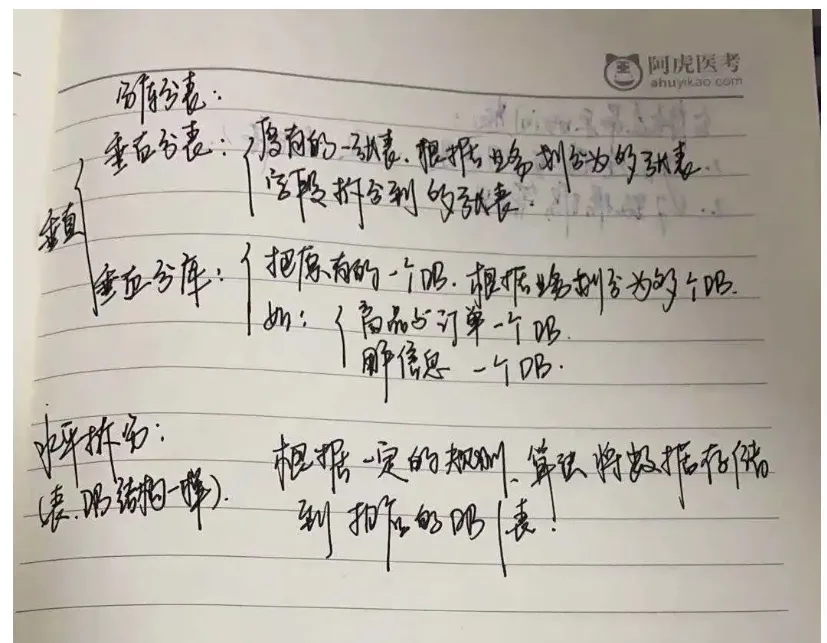 阿虎医考
ahuyikao.com
分库分表:
垂直
垂直分表: 原有的一张表. 根据业务划分为多张表.
字段拆分到多张表.
垂直分库: 把原有的一个DB. 根据业务划分为多个DB.
如: 商品与订单一个DB.
用户信息 一个DB.
水平拆分:
(表、DB结构一样).
根据一定的规则、算法将数据存储
到 的DB 表.